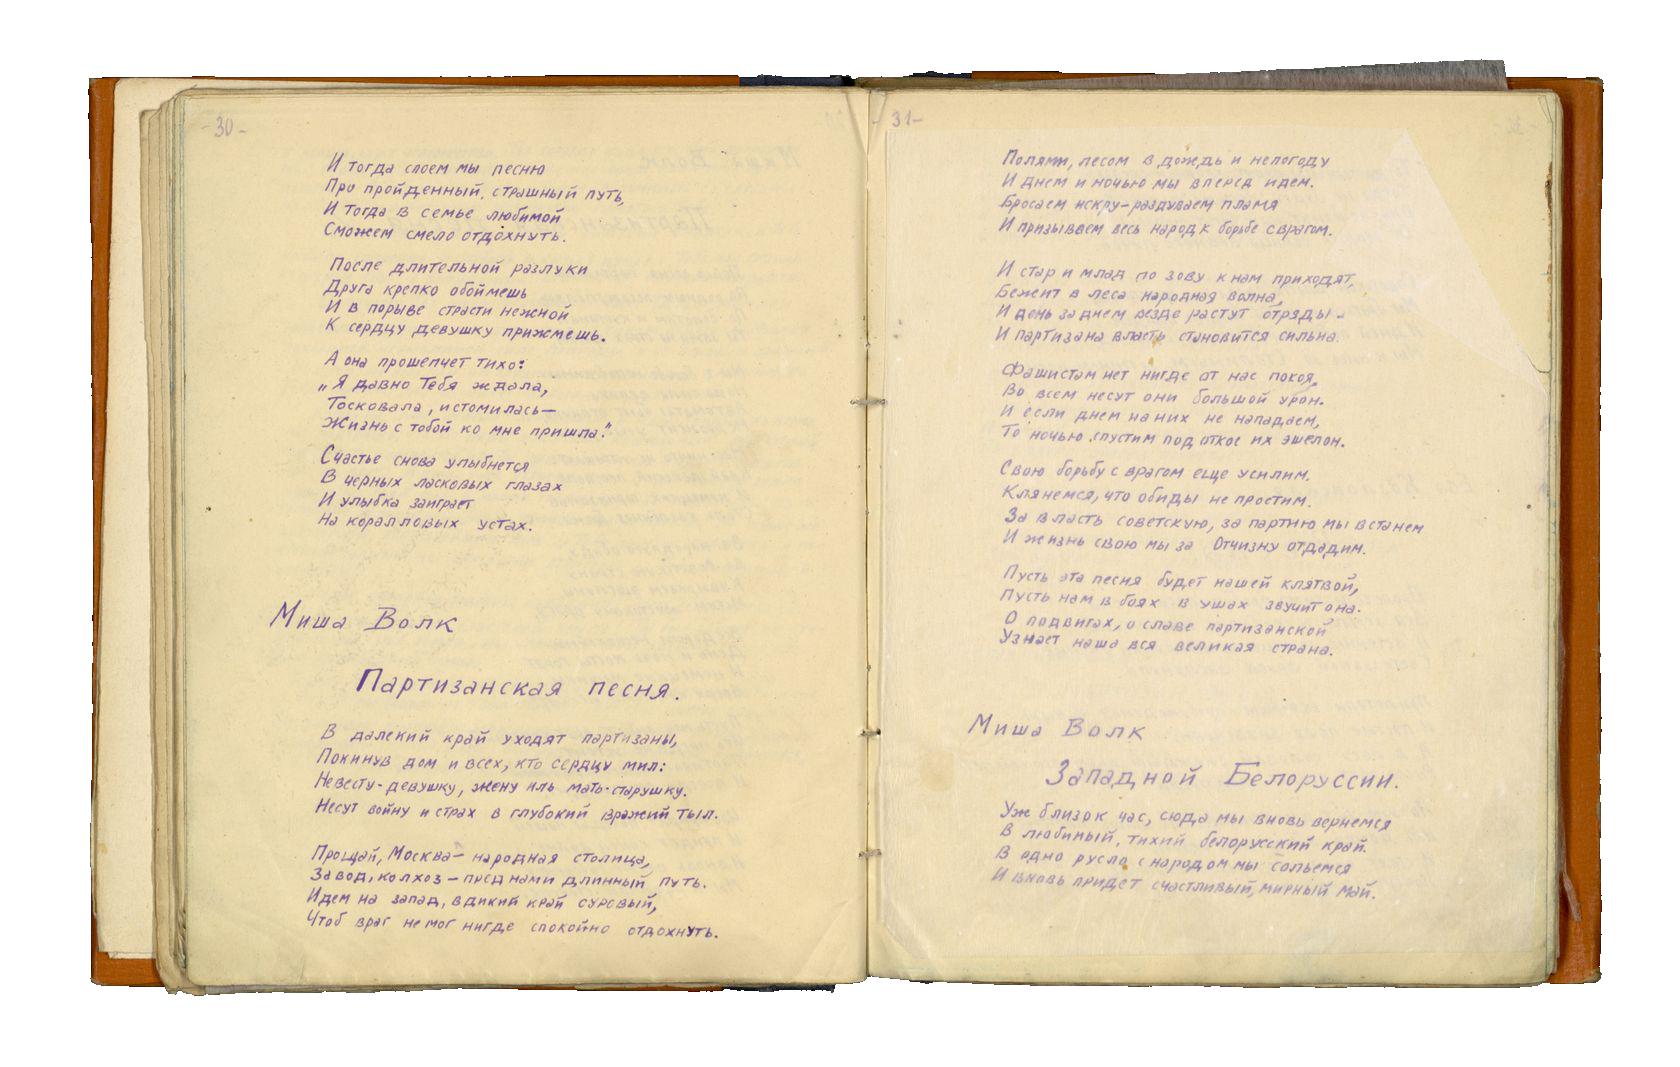 -30-
И тогда споем мы песню
Про пройденный, страшный путь,
И тогда в семье любимой
Сможем смело отдохнуть.
После длительной разлуки
Друга крепко обоймешь
И в порыве страсти нежной
К сердцу девушку прижмешь.
А она прошепчет тихо:
„Я давно Тебя ждала,
Тосковала, истомилась—
Жизнь с тобой ко мне пришла."
Счастье снова улыбнется
В черных ласковых глазах
И улыбка заиграет
На коралловых устах.
Миша Волк
Партизанская песня.
В далекий край уходят партизаны,
Покинув дом и всех, кто сердцу мил:
Невесту-девушку, жену иль мать-старушку.
Несут войну и страх в глубокий вражий тыл.
Прощай, Москва— народная столица,
Завод, колхоз — пред нами длинный путь.
Идем на запад, в дикий край суровый,
Чтоб враг не мог нигде спокойно отдохнуть.
-31-
Полями, лесом в дождь и непогоду
И днем и ночью мы вперед идем.
Бросаем искру-раздуваем пламя
И призываем весь народ к борьбе с врагом.
И стар и млад по зову к нам приходят,
Бежит в леса народная волна,
И день за днем везде растут отряды-
И партизана власть становится сильна.
Фашистам нет нигде от нас покоя,
Во всем несут они большой урон.
И если днем на них не нападаем,
То ночью спустим под откос их эшелон.
Свою борьбу с врагом еще усилим.
Клянемся, что обиды не простим.
За власть советскую, за партию мы встанем
И жизнь свою мы за Отчизну отдадим.
Пусть эта песня будет нашей клятвой,
Пусть нам в боях в ушах звучит она.
О подвигах, о славе партизанской
Узнает наша вся великая страна.
Миша Волк
Западной Белоруссии.
Уж близок час, сюда мы вновь вернемся
В любимый, тихий белорусский край.
В одно русло с народом мы сольемся
И вновь придет счастливый, мирный май.